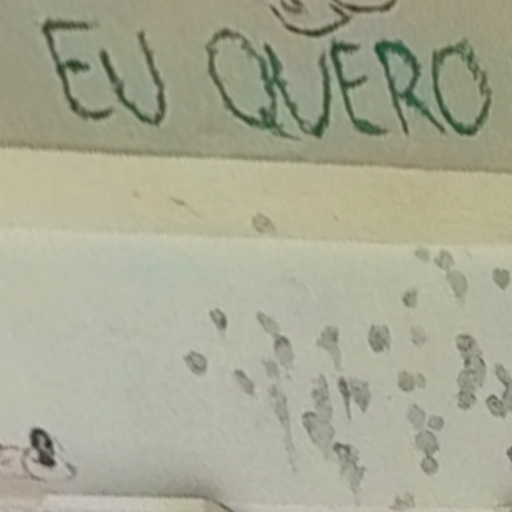 EU QUERO